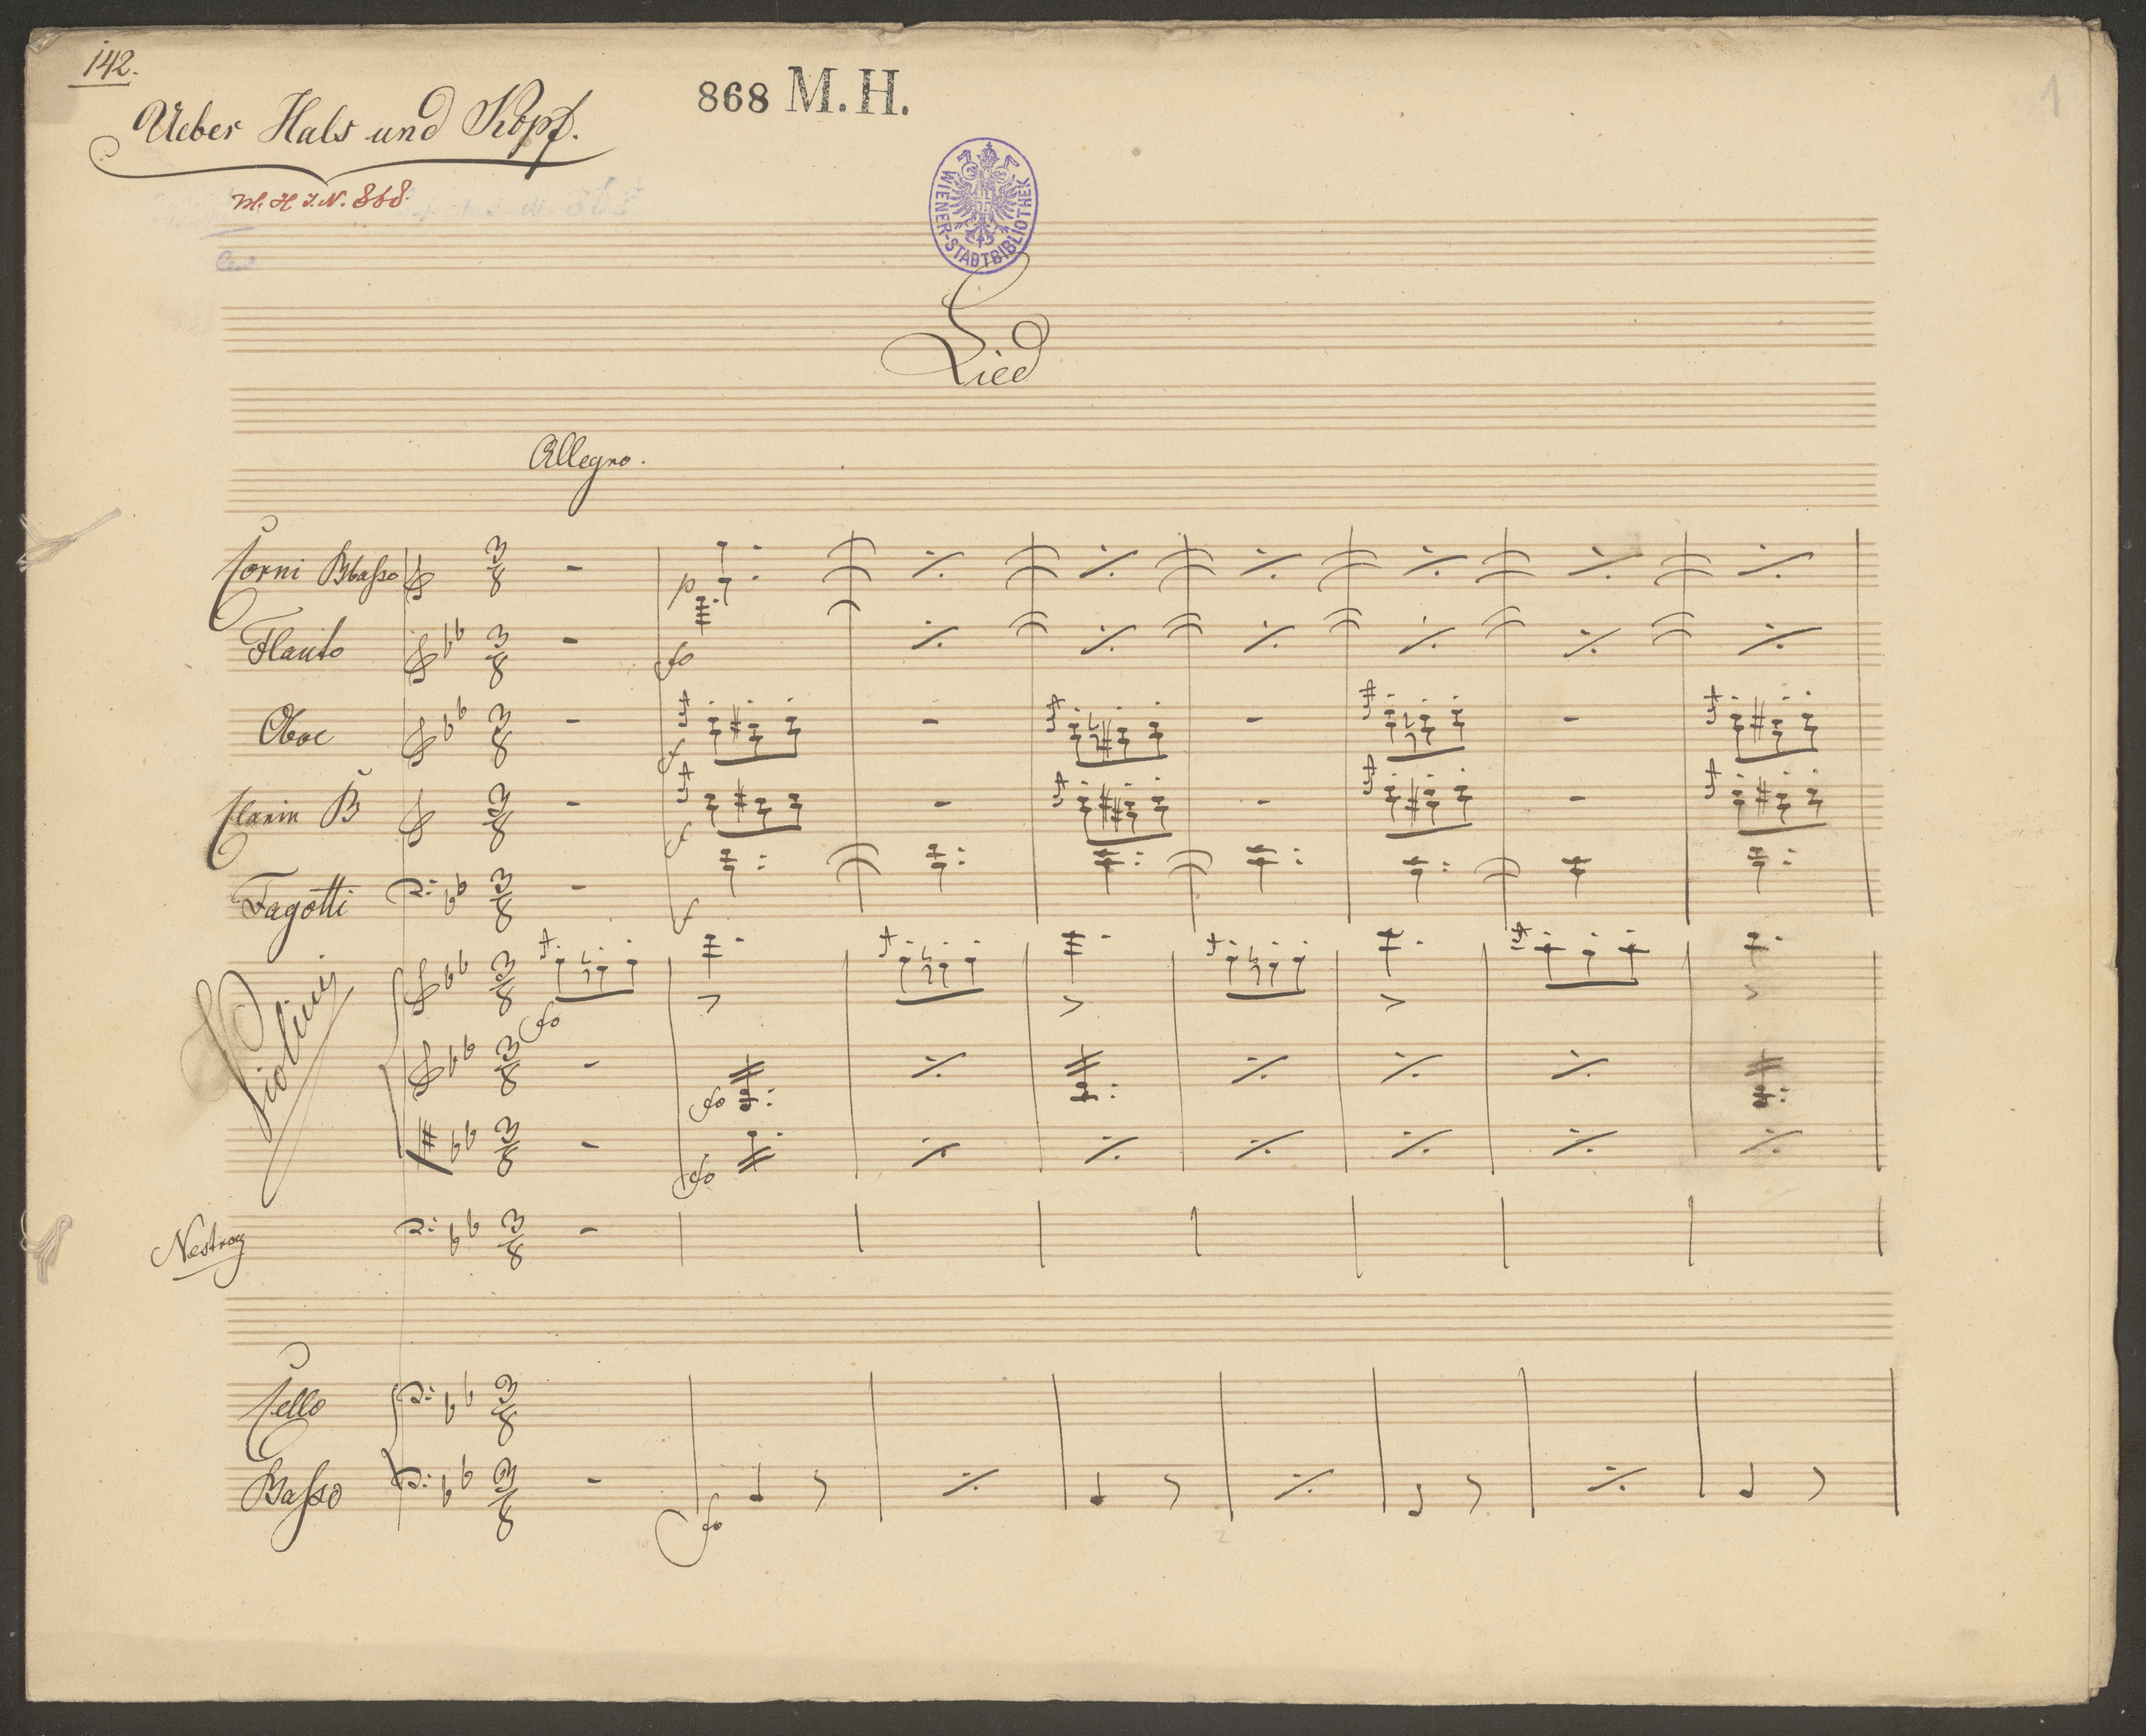 142.
Ueber Hals und Kopf.
868 M. H.
1
M. H. I. N. 868.
WIENER-STADTBIBLIOTHEK
Lied
Allegro.
Corni B basso
p
Flauto
fo
Oboe
f
Clarin B
f
Fagotti
f
Violini
fo
fo
fo
Nestroy
Cello
Basso
fo
2